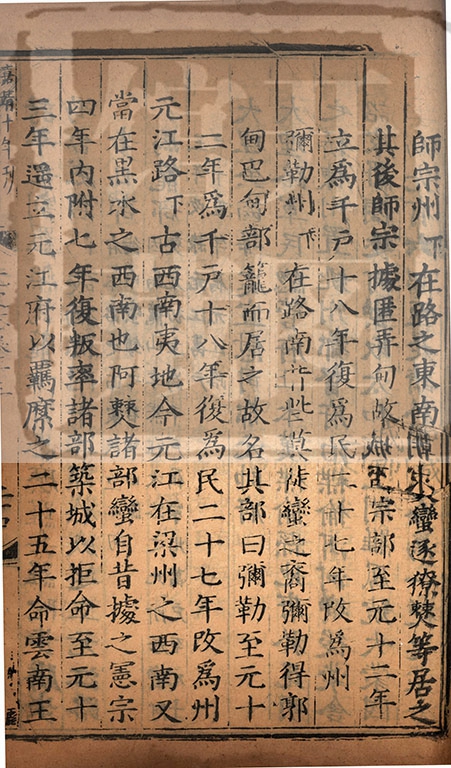 師宗州下在路之東南蠻逐獠僰等居之
其後師宗據匿弄甸故宗部至元十二年
立爲千戸十八年復爲民二十七年改爲州
彌勒州下在路南昔些莫徒蠻之裔彌勒得郭
甸巴甸部籠而居之故名其部曰彌勒至元十
二年爲千戸十八年復爲民二十七年改爲州
元江路下古西南夷地今元江在梁州之西南又
當在黑水之西南也阿僰諸部蠻自昔據之憲宗
四年内附七年復叛率諸部築城以拒命至元十
三年遥立元江府以羈縻之二十五年命雲南王
嘉靖十年刊